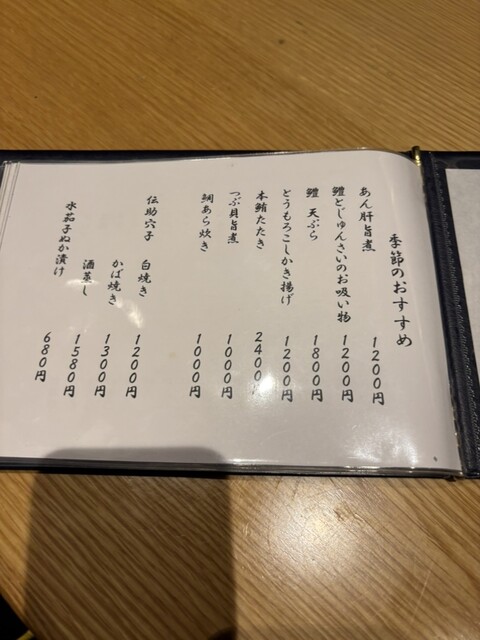 季節のおすすめ
あん肝旨煮 1200円
鱧とじゅんさいのお吸い物 1200円
鱧 天ぷら 1800円
とうもろこしかき揚げ 1200円
本鮪たたき 2400円
つぶ貝旨煮 1000円
鯛あら炊き 1000円
伝助穴子 白焼き 1200円
かば焼き 1300円
酒蒸し 1580円
水茄子ぬか漬け 680円